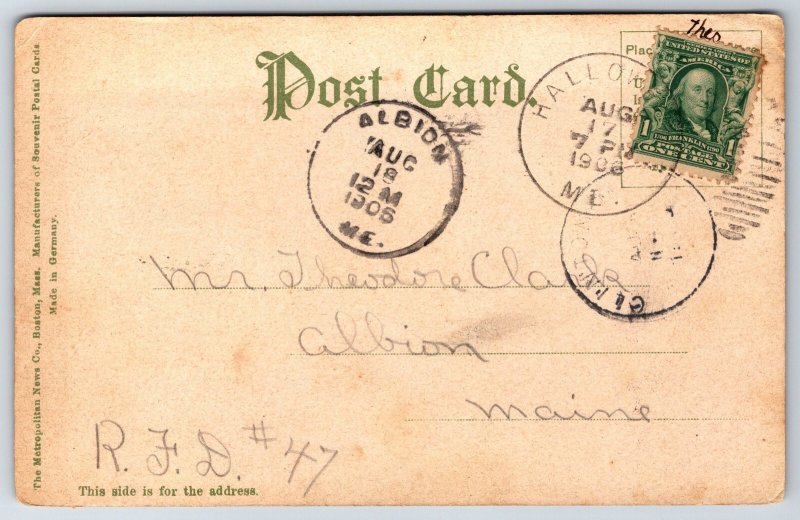 Post Card
Theo
Place
UNITED STATES OF
AMERICA
1 1
1706 FRANKLIN 1790
POSTAGE
ONE CENT
HALLOW
AUG
17
7 PM
1906
ME.
ALBION
AUG
18
12 M
1906
ME.
Mr. Theodore Clark
Albion
Maine
R.F.D. #47
This side is for the address.
The Metropolitan News Co., Boston, Mass. Manufacturers of Souvenir Postal Cards.
Made in Germany.